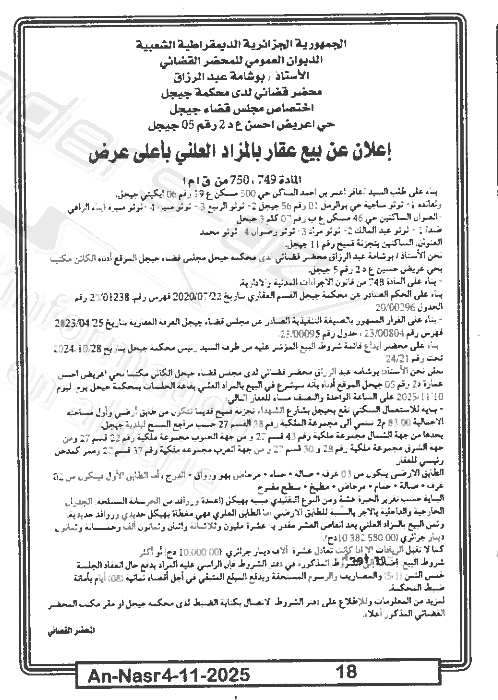 الجمهورية الجزائرية الديمقراطية الشعبية
الديوان العمومي للمحضر القضائي
الأستاذ / بوشامة عبد الرزاق
محضر قضائي لدى محكمة جيجل
اختصاص مجلس قضاء جيجل
حي اعريض احسن ع د 2 رقم 05 جيجل
إعلان عن بيع عقار بالمزاد العلني بأعلى عرض
المادة 749 ، 750 من ق ا م ا
بناء على طلب السيد / عاقر اعمر بن احمد الساكن حي 500 مسكن ع 19 رقم 06
وبعنوان حي بوالرمل 01 رقم 56 جيجل 2- توتو الربيع 3- توتو
العنوان الساكنين حي 46 مسكن ع ب رقم 07 كلم 3 جيجل
ضد / 1- توتو عبد المالك 2- توتو مراد 3- توتو رضوان 4- توتو محمد
العنوان الساكنين بتجزئة قسيح رقم 11 جيجل.
نحن الأستاذ / بوشامة عبد الرزاق محضر قضائي لدى محكمة جيجل مجلس قضاء جيجل الموقع أدناه الكائن مكتبنا
بحي عريض حسين ع د 2 رقم 5 جيجل.
- بناء على المادة 748 من قانون الإجراءات المدنية والإدارية.
بناء على الحكم الصادر عن محكمة جيجل القسم العقاري بتاريخ 2020/07/22 فهرس رقم 20/01238 رقم
الجدول 20/00296
- بناء على القرار الممهور بالصيغة التنفيذية الصادر عن مجلس قضاء جيجل الغرفة العقارية بتاريخ 2023/04/25
فهرس رقم 23/00804 ، جدول رقم 23/00095.
بناء على محضر ايداع قائمة شروط البيع المؤشر عليه من طرف السيد رئيس محكمة جيجل بتاريخ 2024/10/28
تحت رقم 24/21
نعلن نحن الأستاذ / بوشامة عبد الرزاق محضر قضائي لدى مجلس قضاء جيجل الكائن مكتبنا بحي اعريض احسن
عمارة د 2 رقم 05 جيجل الموقع أدناه بأنه سيشرع في البيع بالمزاد العلني بقاعة الجلسات بمحكمة جيجل يوم ليوم
2025/11/10 على الساعة الواحدة والنصف مساء للعقار التالي:
- بناية للاستعمال السكني تقع بجيجل بشارع الشهداء تجزئة قسيح قديما تتكون من طابق أرضي وأول مساحته
الاجمالية 83.00 م2 تنتمي الى مجموعة الملكية رقم 38 القسم 27 حسب مرجع المسح لبلدية جيجل.
يحدها من جهة الشمال مجموعة ملكية رقم 43 قسم 27 ومن جهة الجنوب مجموعة ملكية رقم 22 قسم 27 ومن
جهة الشرق مجموعة ملكية رقم 28 و 30 قسم 27 ومن جهة الغرب مجموعة ملكية رقم 37 قسم 27 وممر كمدخل
رئيسي للعقار
الطابق الارضي يتكون من 03 غرف + صالة + حمام + مرحاض بهو ورواق + الدرج ، أما الطابق الأول فيتكون من 02
غرف + صالة + حمام + مرحاض + مطبخ + سطح مفتوح
البناية حسب تقرير الخبرة هشة ومن النوع التقليدي مبنية بهيكل (أعمدة وروافد من الخرسانة المسلحة الجدران
الخارجية والداخلية بالآجر بالنسبة للطابق الارضي اما الطابق العلوي فهي مغطاة بهيكل حديدي وروافد حديدية.
وثمن البيع بالمزاد العلني بعد انقاص العشر مقدر بـ: عشرة مليون وثلاثمائة واثنان وثمانون ألف وخمسمائة وثمانون
دينار جزائري (10 382 580.00 دج)
كما لا تقبل الزيادات الا اذا كانت تعادل عشرة آلاف دينار جزائري (10.000.00 دج) أو أكثر
شروط البيع: إضافة إلى الشروط المذكورة في دفتر الشروط فإن الراسي عليه المزاد يدفع حال انعقاد الجلسة
خمس الثمن (1/5) والمصاريف والرسوم المستحقة ويدفع المبلغ المتبقي في أجل أقصاه ثمانية (08) أيام بأمانة
ضبط المحكمة.
لمزيد من المعلومات وللإطلاع على دفتر الشروط الاتصال بكتابة الضبط لدى محكمة جيجل أو مقر مكتب المحضر
القضائي المذكور أعلاه.
المحضر القضائي
An-Nasr4-11-2025
18